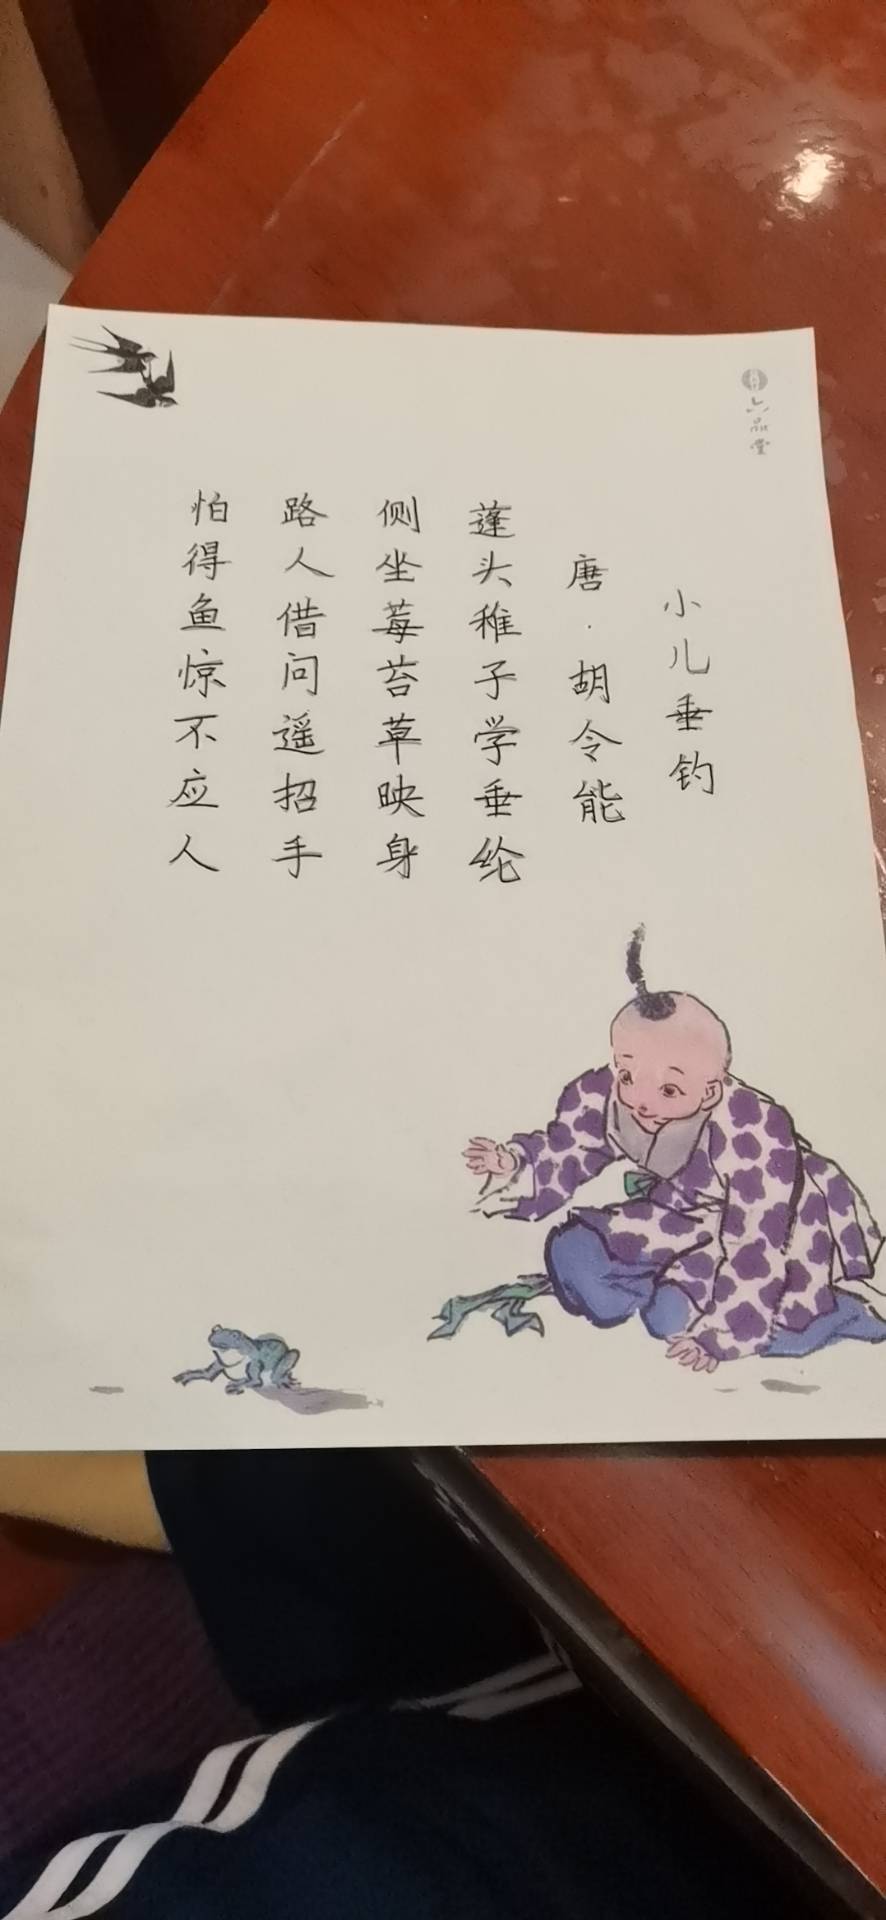 六品堂
小儿垂钓
唐·胡令能
蓬头稚子学垂纶
侧坐莓苔草映身
路人借问遥招手
怕得鱼惊不应人